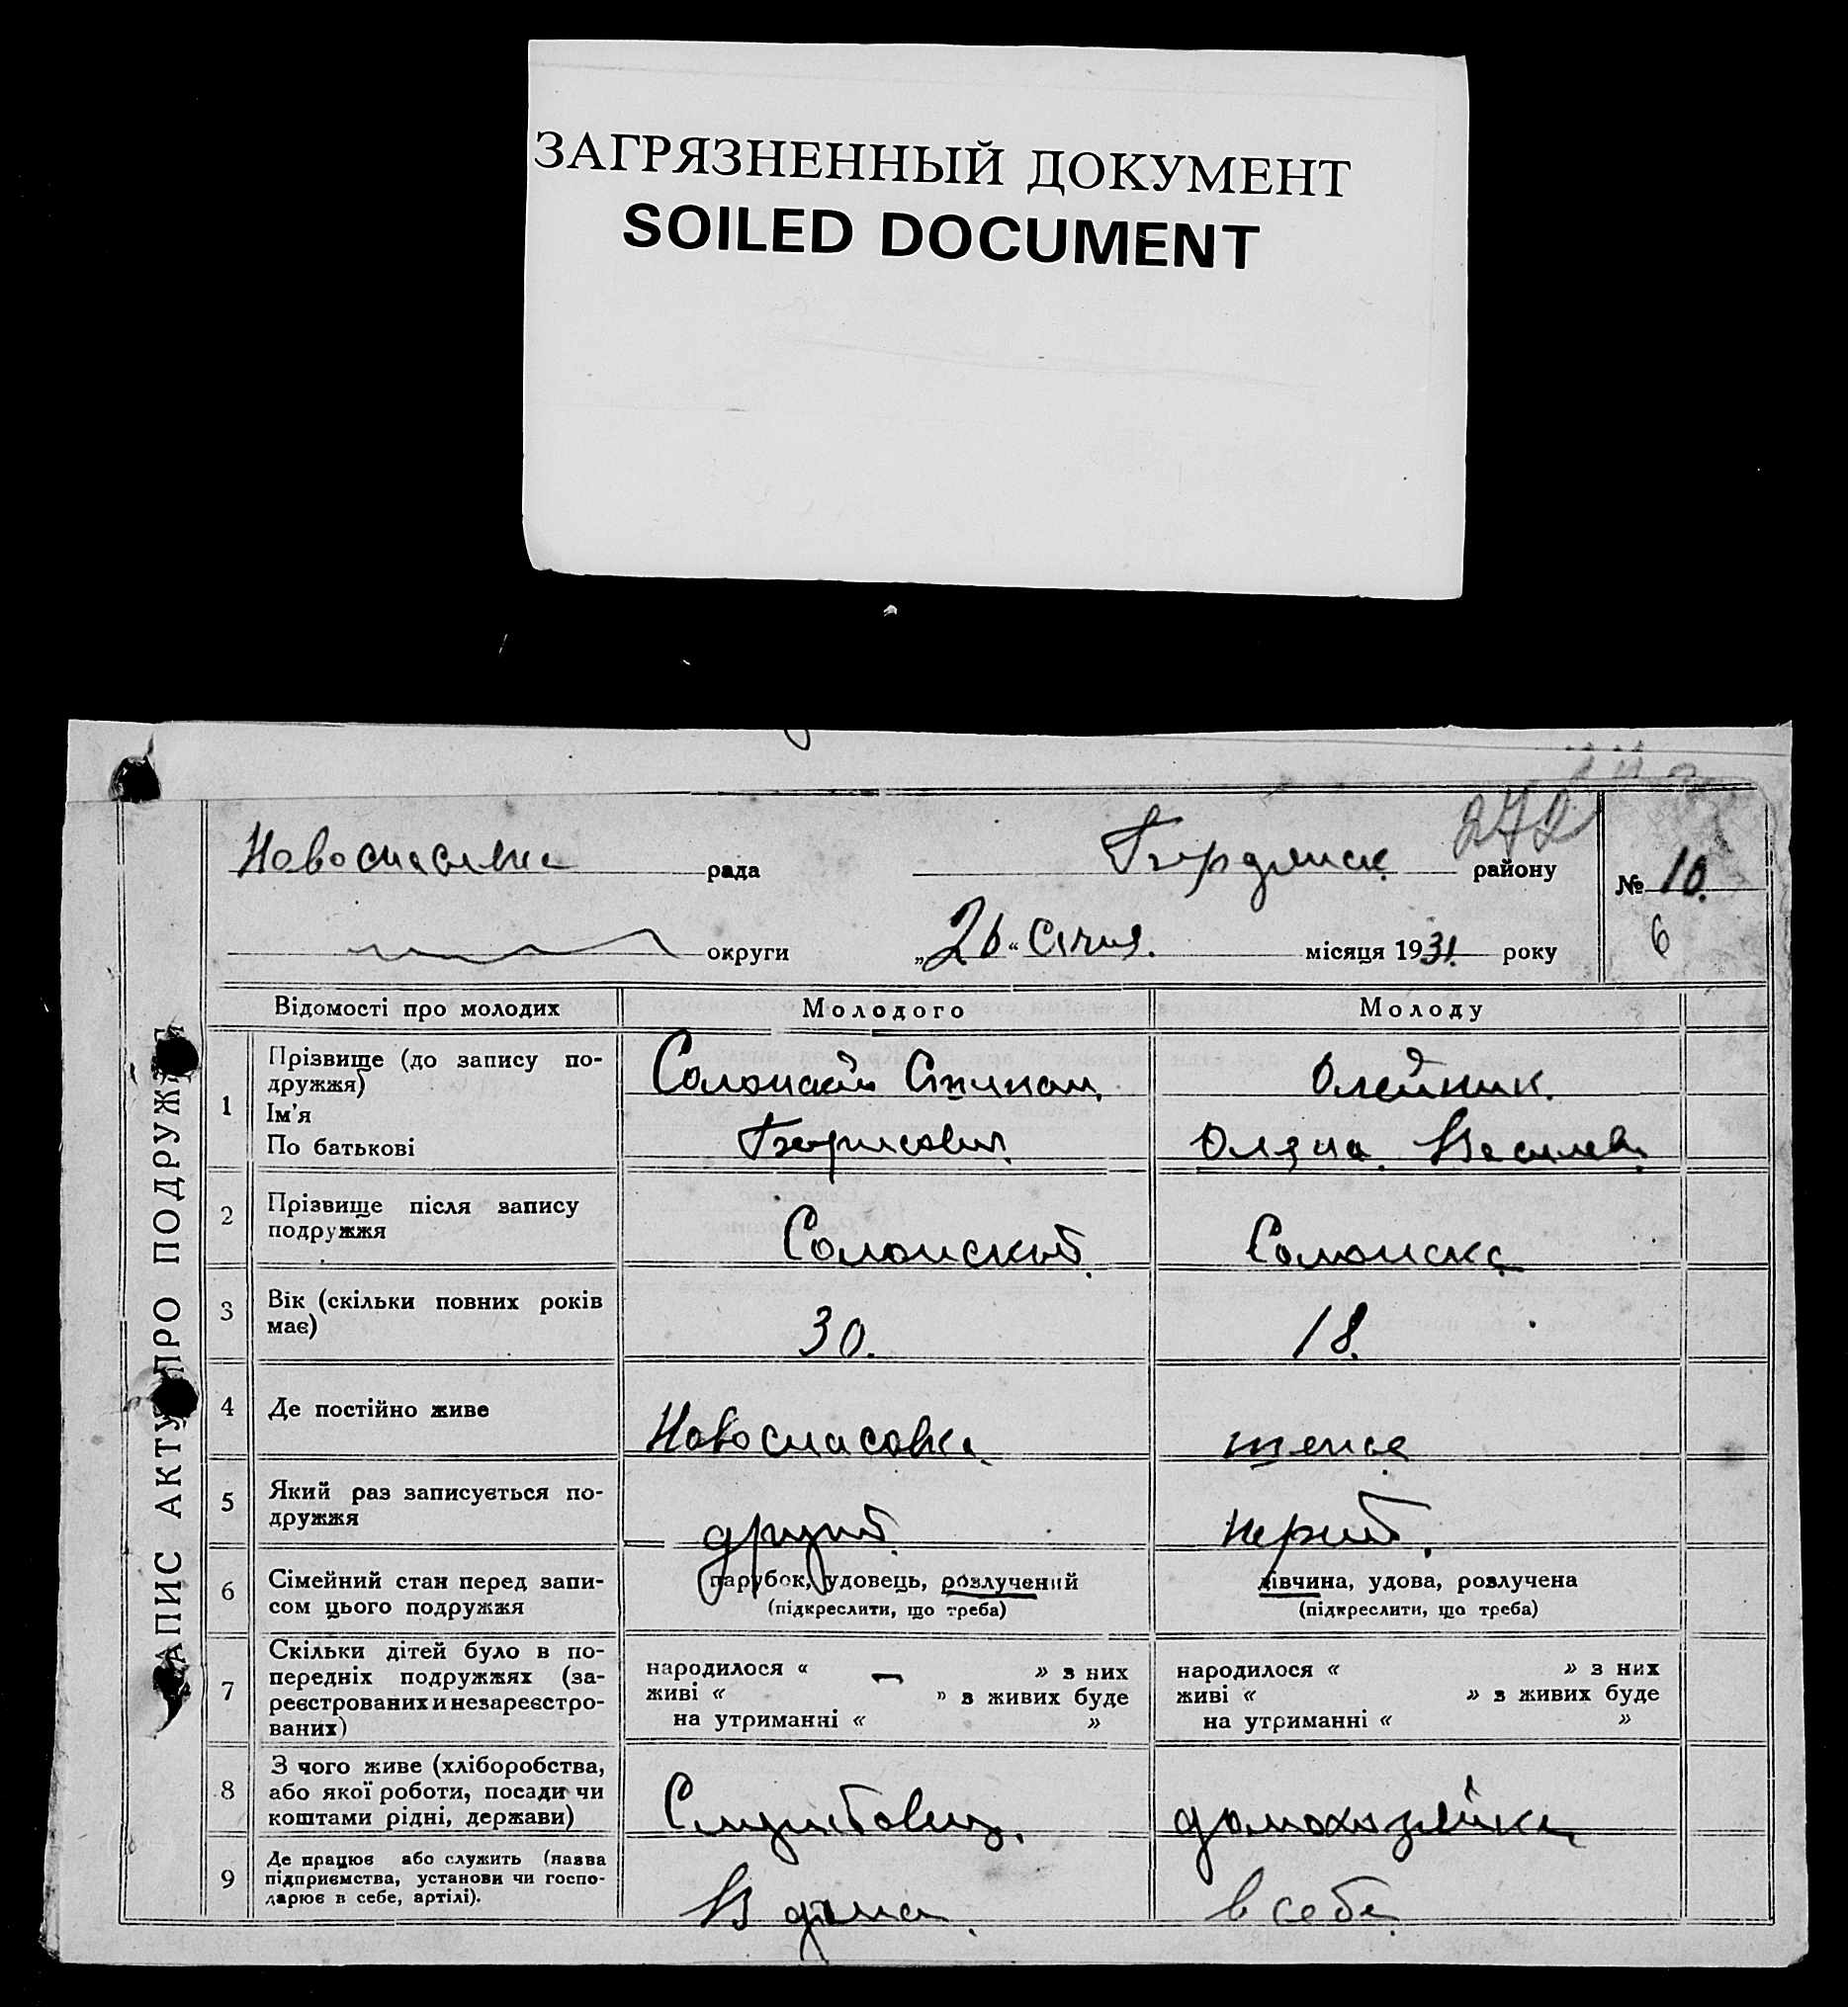 ЗАГРЯЗНЕННЫЙ ДОКУМЕНТ
SOILED DOCUMENT
272
Новоспасівка рада Бердянск району № 10.
округи „26“ Січня. місяця 1931. року 6
ЗАПИС АКТУ ПРО ПОДРУЖЖЯ
Відомості про молодих Молодого Молоду
1 Прізвище (до запису по-
дружжя)
Ім'я
По батькові
Солонский Степан Олейник.
Борисович. Оляна Василев.
2 Прізвище після запису
подружжя
Солонский Солонска
3 Вік (скільки повних років
має)
30. 18.
4 Де постійно живе Новоспасовка теж
5 Який раз записується по-
дружжя
другий перший
6 Сімейний стан перед запи-
сом цього подружжя
парубок, удовець, розлучений
(підкреслити, що треба)
дівчина, удова, розлучена
(підкреслити, що треба)
7 Скільки дітей було в по-
передніх подружжях (за-
реєстрованих и незареєстро-
ваних)
народилося « — » з них
живі « » з живих буде
на утриманні « »
народилося « » з них
живі « » з живих буде
на утриманні « »
8 З чого живе (хліборобства,
або якої роботи, посади чи
коштами рідні, держави)
Службовец. домохозяйка
9 Де працює або служить (назва
підприємства, установи чи госпо-
дарює в себе, артілі).
В в себе